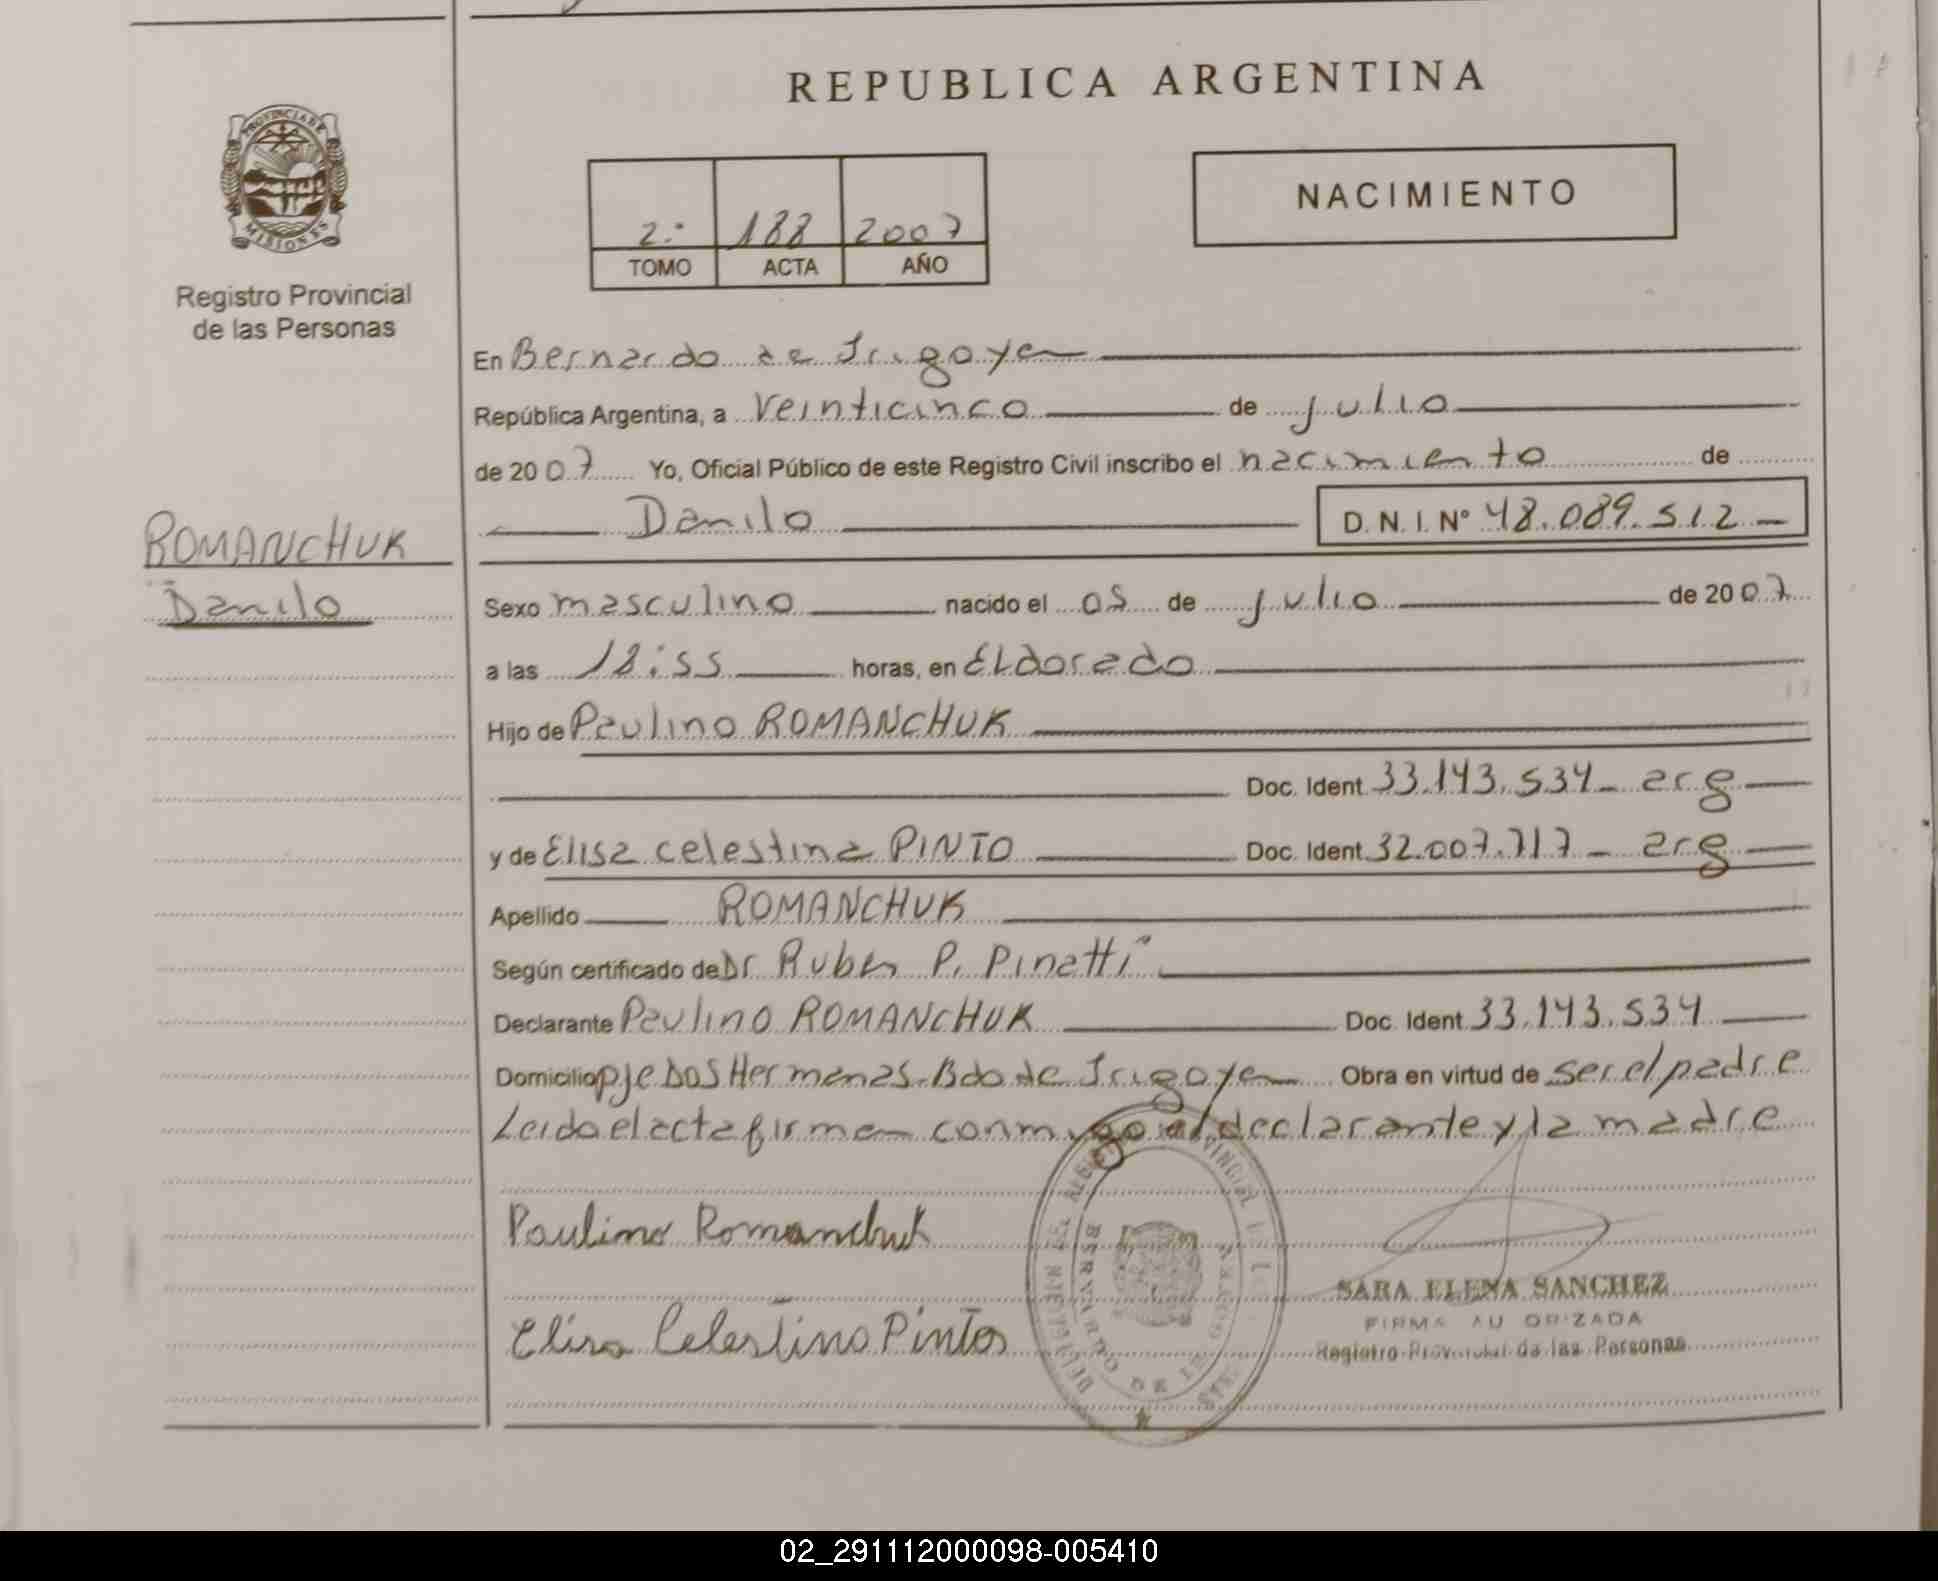 REPUBLICA ARGENTINA
PROVINCIA DE
MISIONES
Registro Provincial
de las Personas
NACIMIENTO
2º 188 2007
TOMO ACTA AÑO
En Bernardo de Irigoyen
República Argentina, a veinticinco de julio
de 2007 Yo, Oficial Público de este Registro Civil inscribo el nacimiento de
Danilo D. N. I. Nº 48.089.512
ROMANCHUK
Danilo
Sexo masculino nacido el 05 de julio de 2007
a las 18:55 horas, en Eldorado
Hijo de Paulino ROMANCHUK
Doc. Ident 33.143.534 - arg
y de Elisa Celestina PINTO Doc. Ident 32.007.717 - arg
Apellido ROMANCHUK
Según certificado de Dr Ruben P. Pinatti
Declarante Paulino ROMANCHUK Doc. Ident 33.143.534
Domicilio pje Dos Hermanas. Bdo de Irigoyen Obra en virtud de ser el padre
Leida el acta firman conmigo el declarante y la madre
Paulino Romanchuk
Elisa Celestina Pinto
SARA ELENA SANCHEZ
FIRMA AUTORIZADA
Registro Provincial de las Personas
02_291112000098-005410